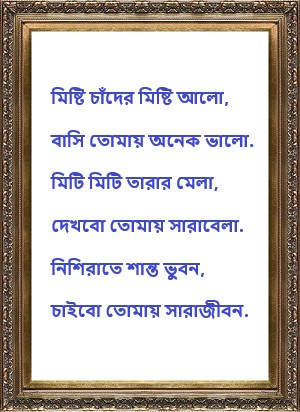 মিষ্টি চাঁদের মিষ্টি আলো,
বাসি তোমায় অনেক ভালো.
মিটি মিটি তারার মেলা,
দেখবো তোমায় সারাবেলা.
নিশিরাতে শান্ত ভুবন,
চাইবো তোমায় সারাজীবন.